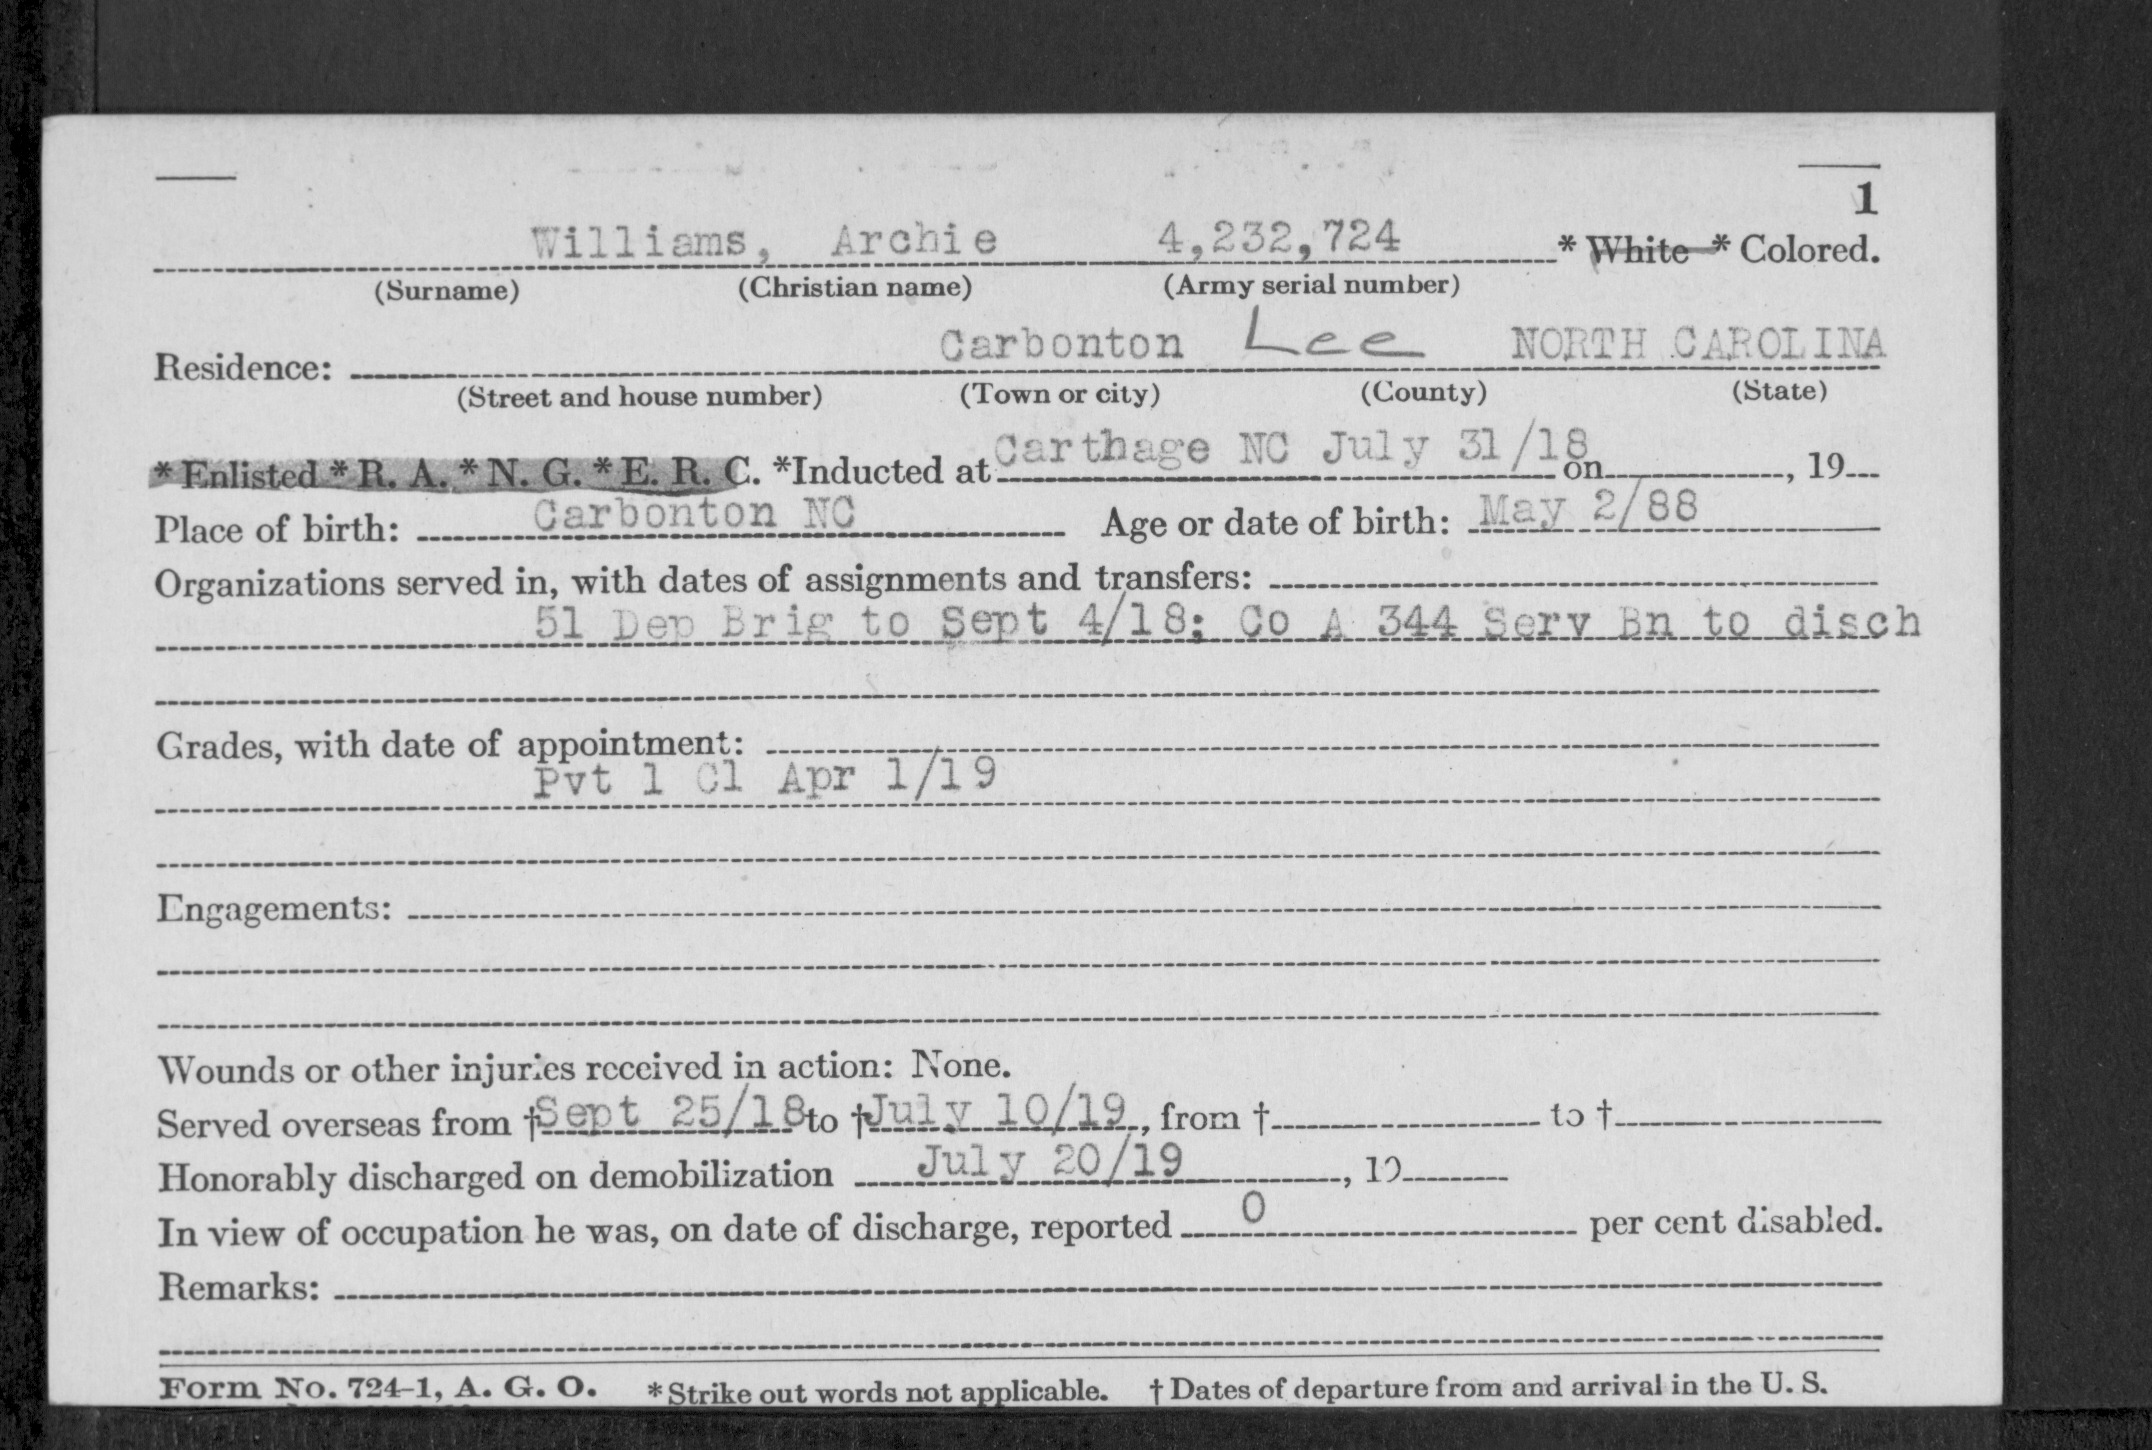 1
Williams, Archie 4,232,724 * White * Colored.
(Surname) (Christian name) (Army serial number)
Residence: Carbonton Lee NORTH CAROLINA
(Street and house number) (Town or city) (County) (State)
* Enlisted * R. A. * N. G. * E. R. C. *Inducted at Carthage NC July 31/18 on , 19
Place of birth: Carbonton NC Age or date of birth: May 2/88
Organizations served in, with dates of assignments and transfers:
51 Dep Brig to Sept 4/18; Co A 344 Serv Bn to disch
Grades, with date of appointment:
Pvt 1 Cl Apr 1/19
Engagements:
Wounds or other injuries received in action: None.
Served overseas from †Sept 25/18 to †July 10/19, from † to †
Honorably discharged on demobilization July 20/19, 19
In view of occupation he was, on date of discharge, reported 0 per cent disabled.
Remarks:
Form No. 724-1, A. G. O. * Strike out words not applicable. † Dates of departure from and arrival in the U. S.